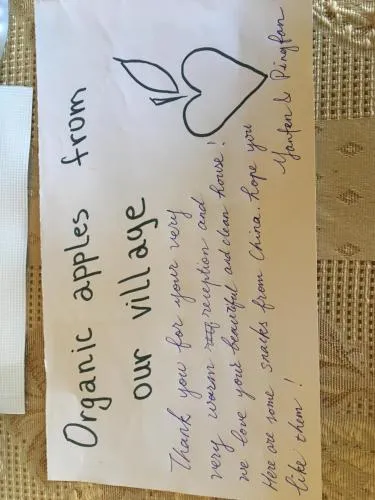 Organic apples from
our village
Thank you for your very
very warm reception and
we love your beautiful and clean house!
Here are some snacks from China. hope you
like them!
Yanfen & Pingfan